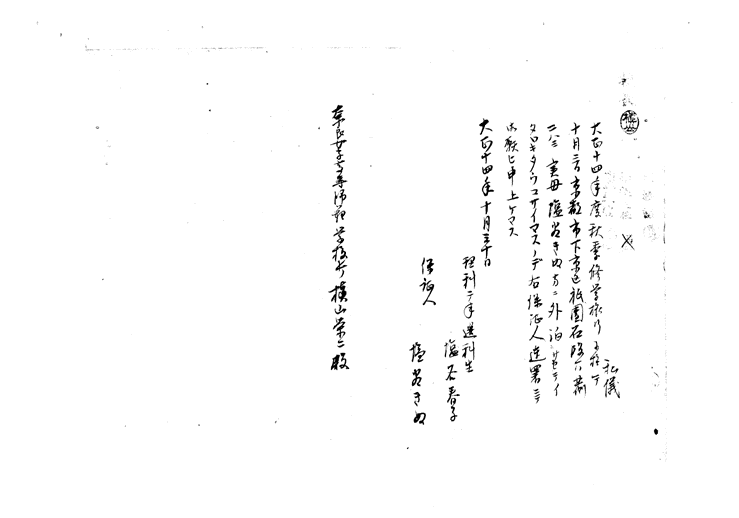 私儀
大正十四年度秋季修学旅行
十月三日京都市下京区祇園石段下
実母塩谷きぬ方ニ外泊サセテイ
タダキタウゴザイマスノデ右保証人連署ニテ
御願ヒ申上ケマス
大正十四年十月三十日
理科二年選科生
塩谷春子
保証人
塩谷きぬ
奈良女子高等師範学校長横山栄二殿